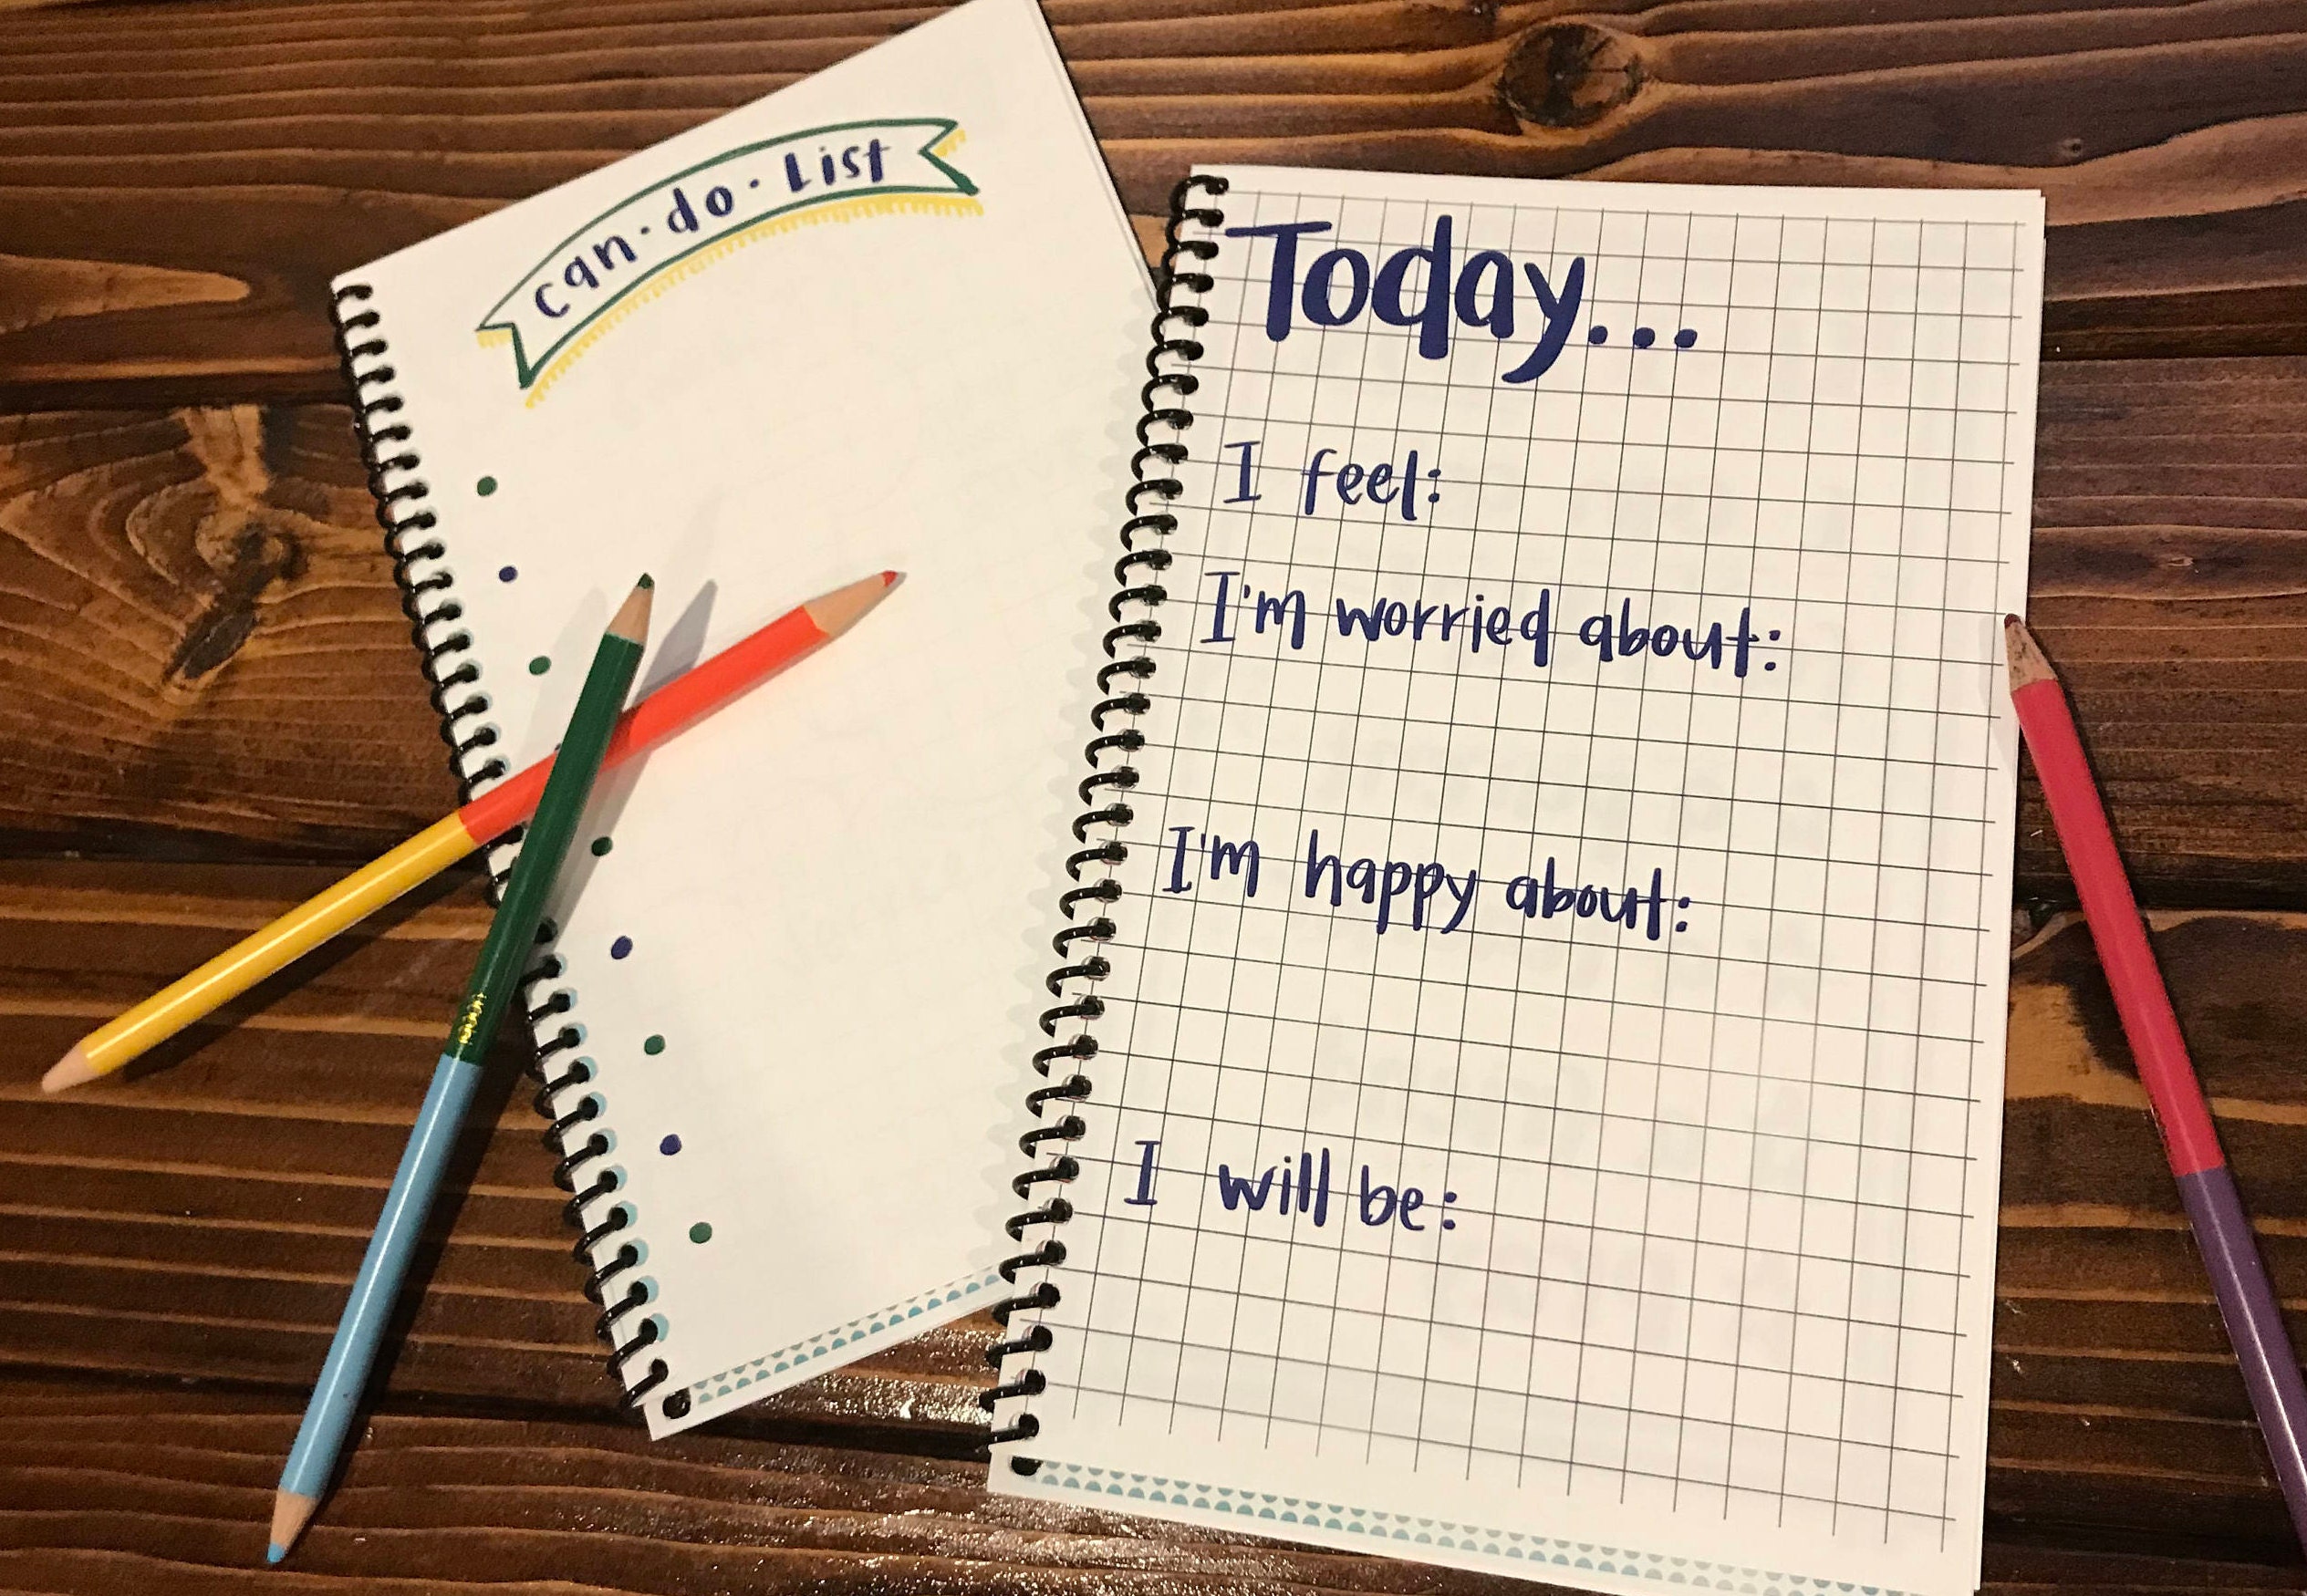 can·do·List
Today...
I feel:
I'm worried about:
I'm happy about:
I will be: